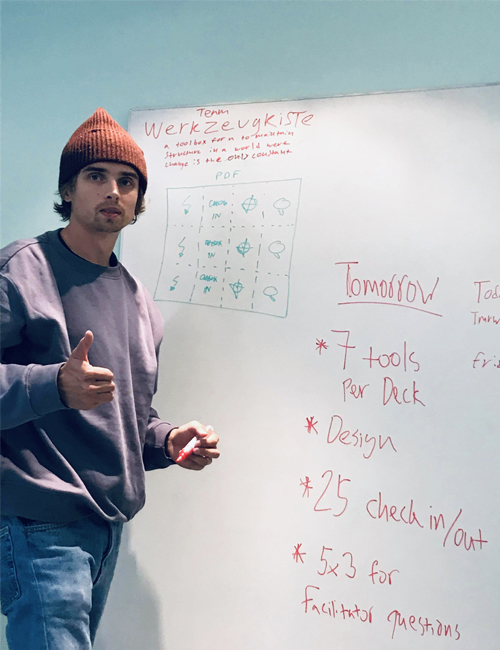 Team
Werkzeugkiste
a toolbox for to maintain
structure in a world were
change is the only constant
PDF
CHECK
IN
CHECK
IN
CHECK
IN
Tomorrow
* 7 tools
Per Deck
* Design
* 25 check in/out
* 5x3 for
Facilitator questions